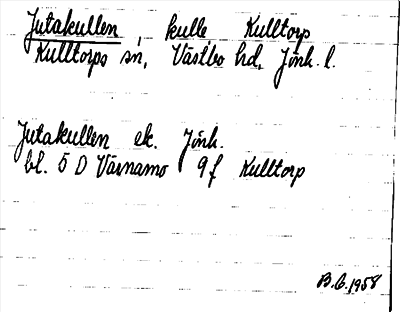 Jutakullen, kulle Kulltorp
Kulltorps sn, Västbo hd, Jönk. l.
Jutakullen ek. Jönk.
bl. 5 D Värnamo 9f Kulltorp
B.G. 1958